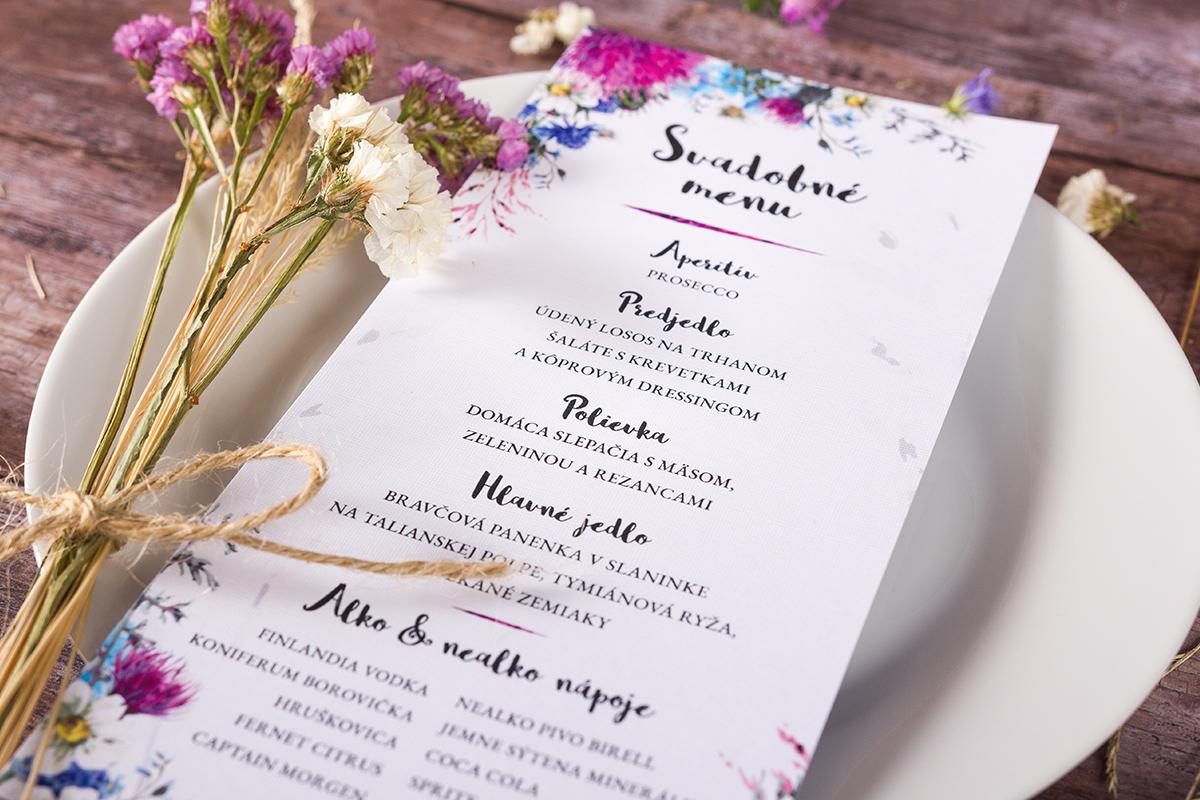 Svadobné
menu
Aperitív
PROSECCO
Predjedlo
ÚDENÝ LOSOS NA TRHANOM
ŠALÁTE S KREVETKAMI
A KÔPROVÝM DRESSINGOM
Polievka
DOMÁCA SLEPAČIA S MÄSOM,
ZELENINOU A REZANCAMI
Hlavné jedlo
BRAVČOVÁ PANENKA V SLANINKE
NA TALIANSKEJ TYMIÁNOVÁ RYŽA,
ZEMIAKY
Alko & nealko nápoje
FINLANDIA VODKA
KONIFERUM BOROVIČKA
HRUŠKOVICA
FERNET CITRUS
CAPTAIN MORGEN
NEALKO PIVO BIRELL
JEMNE SÝTENA
COCA COLA